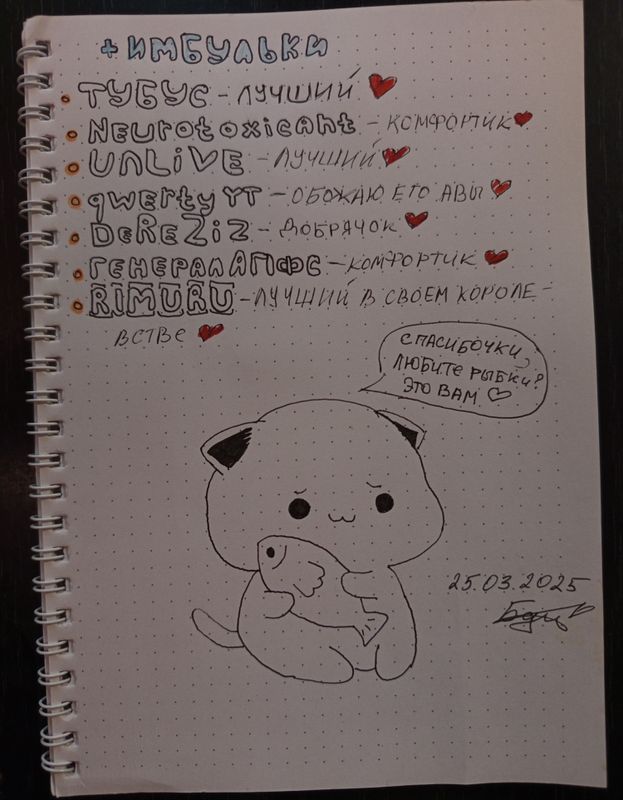 + ИМБУЛЬКИ
ТУБУС - ЛУЧШИЙ
NeurotoxicAnt - КОМФОРТИК
UnLiVE - ЛУЧШИЙ
qwerty YT - ОБОЖАЮ ЕГО АВЫ
DeReZiZ - ДОБРЯЧОК
ГЕНЕРАЛ АПФС - КОМФОРТИК
RIMURU - ЛУЧШИЙ В СВОЕМ КОРОЛЕ -
ВСТВЕ
СПАСИБОЧКИ,
ЛЮБИТЕ РЫБКИ?
ЭТО ВАМ
25.03.2025